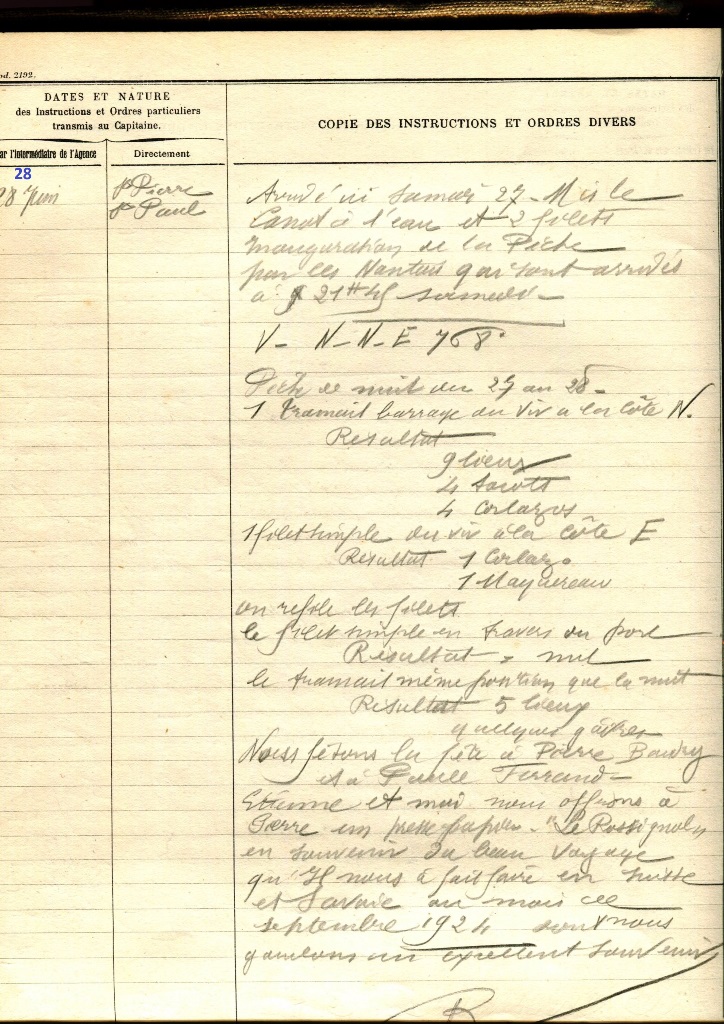 od. 2192.
DATES ET NATURE
des Instructions et Ordres particuliers
transmis au Capitaine.
COPIE DES INSTRUCTIONS ET ORDRES DIVERS
ar l'intermédiaire de l'Agence
Directement
28
28 Juin
St Pierre
St Paul
Arrivé ici samedi 27 - Mis le
Canot à l'eau et 2 filets
Inauguration de la Pêche
par les Nantais qui sont arrivés
à 21H45 samedi -
V - N-N-E 768°
Pêche de nuit du 27 au 28 -
1 tramail barrage du viv a la côte N.
Résultat
9 lieux
4 tacots
4 Corlazos
1 filet simple du viv à la côte E
Résultat 1 Corlazo
1 Maquereau
on refile les filets
le filet simple en travers du port
Résultat = nul
le tramail même position que la nuit
Résultat 5 lieux
quelques
Nous fêtons la fête à Pierre Baudry
et à Paule Ferrand -
Etienne et moi nous offrons à
Pierre un presse papier - "Le Rossignol"
en souvenir du beau voyage
qu'Il nous a fait faire en Suisse
et Savoie au mois de
septembre 1924 dont nous
gardons un excellent souvenir